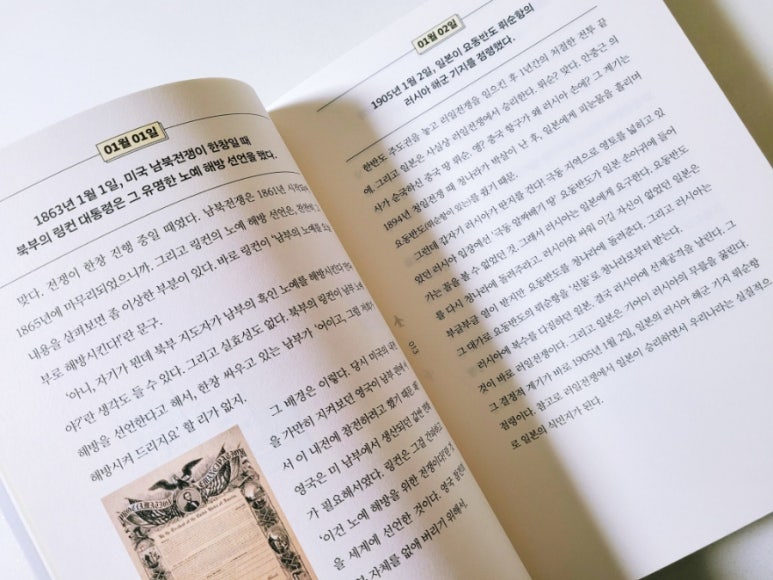 01월 01일
1863년 1월 1일, 미국 남북전쟁이 한창일 때
북부의 링컨 대통령은 그 유명한 노예 해방 선언을 했다.
맞다. 전쟁이 한창 진행 중일 때였다. 남북전쟁은 1861년
1865년에 마무리되었으니까. 그리고 링컨의 노예 해방 선언은,
내용을 살펴보면 좀 이상한 부분이 있다. 바로 링컨이 '남부의 노예를
부로 해방시킨다!'란 문구.
'아니, 자기가 뭔데 북부 지도자가 남부의 흑인 노예를 해방시킨다
아?'란 생각도 들 수 있다. 그리고 실효성도 없다. 북부의 링컨이 남부 노예
해방을 선언한다고 해서, 한창 싸우고 있는 남부가 '어이고, 그럼
해방시켜 드리지요' 할 리가 없지.
그 배경은 이렇다. 당시 미국의
을 가만히 지켜보던 영국이 남부 편에
서 이 내전에 참전하려고 했기 때문
영국은 미 남부에서 생산되던
가 필요해서였다. 링컨은 그걸
'이건 노예 해방을 위한 전쟁이다!'
을 세계에 선언한 것이다. 영국
자체를 없애 버리기 위해서.
01월 02일
1905년 1월 2일, 일본이 요동반도 뤼순항의
러시아 해군 기지를 점령했다.
한반도 주도권을 놓고 러일전쟁을 일으킨 후 1년간의 처절한 전투 끝
에, 그리고 일본은 사실상 러일전쟁에서 승리한다. 뤼순? 맞다. 안중근 의
사가 순국하신 중국 땅 뤼순 맹? 중국 항구가 왜 러시아 손에? 그 계기는
1894년 청일전쟁 때 청나라가 박살이 난 후, 일본에게 피눈물을 흘리며
요동반도(뤼순항이 있는)를 줬기 때문.
그런데 갑자기 러시아가 딴지를 건다! 극동 지역으로 영토를 넓히고 있
었던 러시아 입장에선 '극동 알짜배기 땅' 요동반도가 일본 손아귀에 들어
가는 꼴을 볼 수 없었던 것. 그래서 러시아는 일본에게 요구한다. 요동반도
를 다시 청나라에 돌려주라고. 러시아와 싸워 이길 자신이 없었던 일본은
부글부글 열이 받지만 요동반도를 청나라에 돌려준다. 그리고 러시아는
그 대가로 요동반도의 뤼순항을 '선물'로 청나라로부터 받는다.
러시아에 복수를 다짐했던 일본. 결국 러시아에 선제공격을 날린다. 그
것이 바로 러일전쟁이다. 그리고 일본은 기어이 러시아의 무릎을 꿇린다.
그 결정적 계기가 바로 1905년 1월 2일, 일본의 러시아 해군 기지 뤼순항
점령이다. 참고로 러일전쟁에서 일본이 승리하면서 우리나라는 실질적으
로 일본의 식민지가 된다.
013